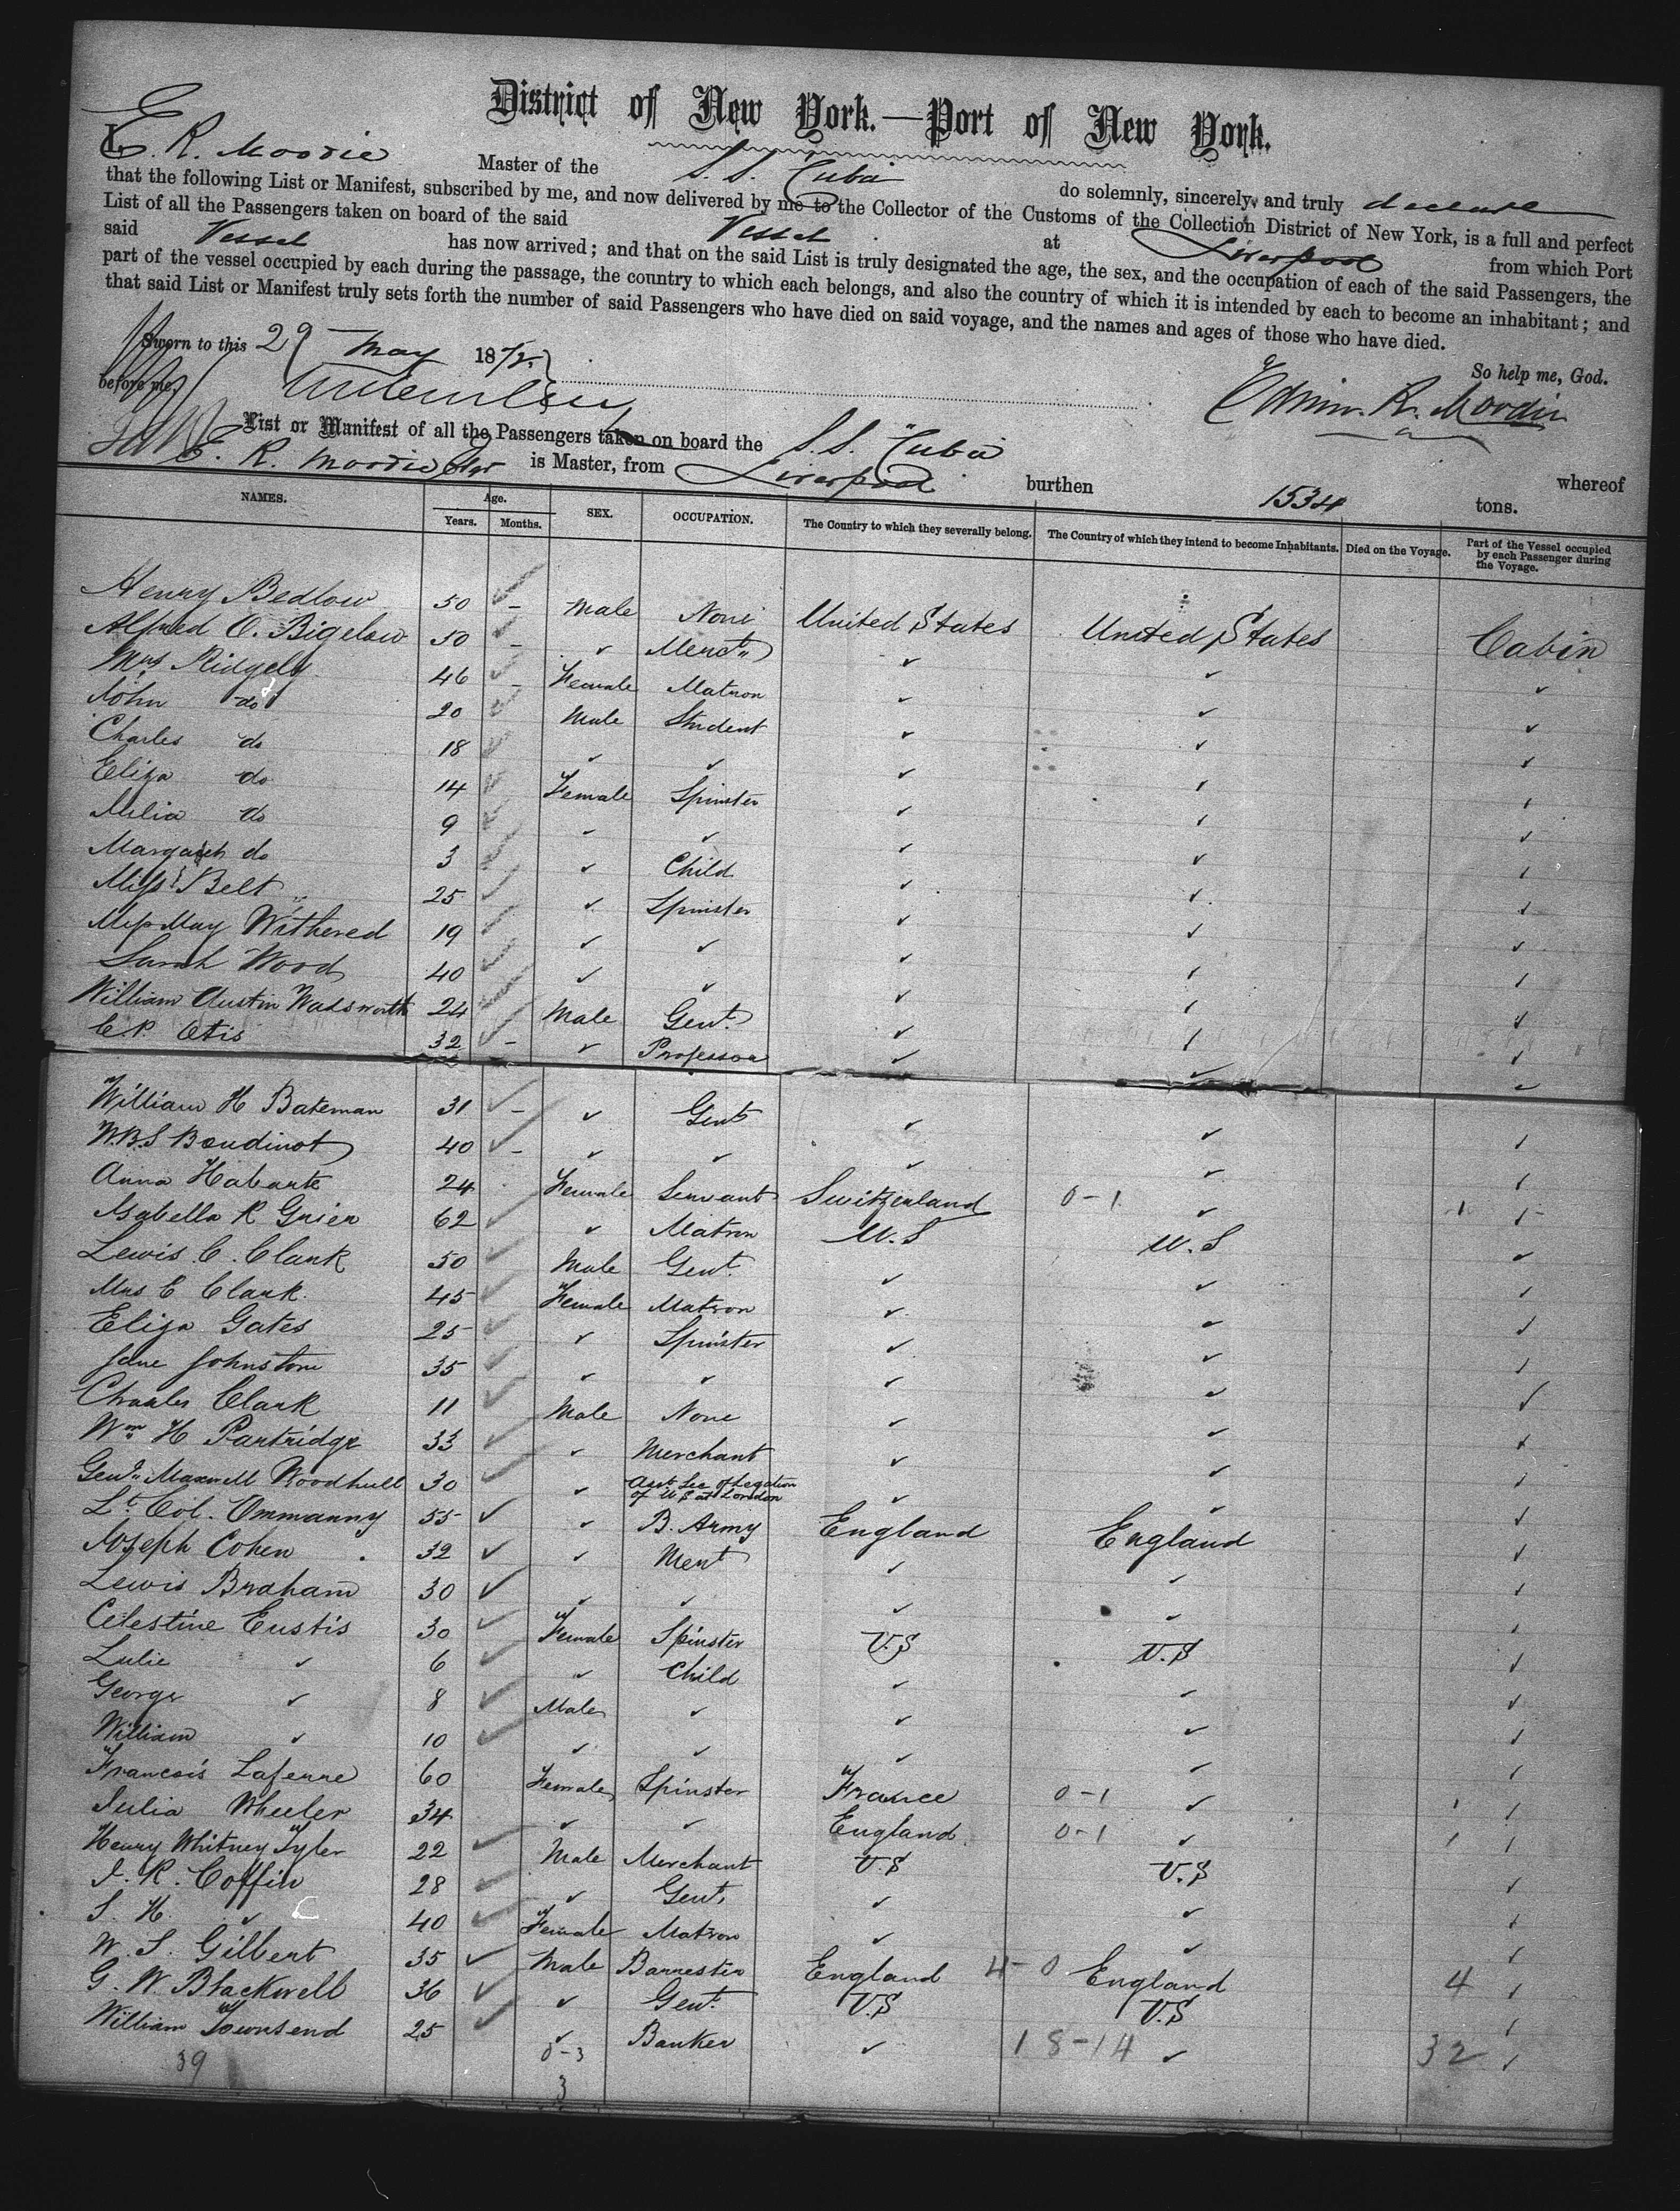 District of New York.—Port of New York.
I, E. R. Moodie Master of the S. S. Cuba do solemnly, sincerely, and truly declare
that the following List or Manifest, subscribed by me, and now delivered by me to the Collector of the Customs of the Collection District of New York, is a full and perfect
List of all the Passengers taken on board of the said Vessel at Liverpool from which Port
said Vessel has now arrived; and that on the said List is truly designated the age, the sex, and the occupation of each of the said Passengers, the
part of the vessel occupied by each during the passage, the country to which each belongs, and also the country of which it is intended by each to become an inhabitant; and
that said List or Manifest truly sets forth the number of said Passengers who have died on said voyage, and the names and ages of those who have died.
So help me, God.
Sworn to this 29 May 1872
before me,
Edwin. R. Moodie
List or Manifest of all the Passengers taken on board the S. S. "Cuba" whereof
E. R. Moodie Esqr is Master, from Liverpool burthen 1534 tons.
NAMES. Age. Years. Months. SEX. OCCUPATION. The Country to which they severally belong. The Country of which they intend to become Inhabitants. Died on the Voyage. Part of the Vessel occupied by each Passenger during the Voyage.
Henry Bedlow 50 - Male None United States United States Cabin
Alfred O. Bigelow 50 - ✓ Merct ✓ ✓ ✓
Mrs Ridgely 46 - Female Matron ✓ ✓ ✓
John do 20 Male Student ✓ ✓ ✓
Charles do 18 ✓ ✓ ✓ ✓ ✓
Eliza do 14 Female Spinster ✓ ✓ ✓
Julia do 9 ✓ ✓ ✓ ✓ ✓
Margaret do 3 ✓ Child ✓ ✓ ✓
Miss Belt 25 ✓ Spinster ✓ ✓ ✓
Miss May Withered 19 ✓ ✓ ✓ ✓ ✓
Sarah Wood 40 ✓ ✓ ✓ ✓ ✓
William Austin Wadsworth 24 Male Gent. ✓ ✓ ✓
C. P. Otis 32 - ✓ Professor ✓ ✓ ✓
William H Bateman 31 - ✓ Gent ✓ ✓ ✓
W.B.S Boudinot 40 - ✓ ✓ ✓ ✓ ✓
Anna 24 Female Servant Switzerland 0-1 ✓ 1 ✓
Isabella R Grier 62 ✓ Matron U. S U. S ✓
Lewis C. Clark 50 Male Gent. ✓ ✓ ✓
Mrs C Clark. 45 Female Matron ✓ ✓ ✓
Eliza Gates 25 ✓ Spinster ✓ ✓ ✓
Jane Johnstone 35 ✓ ✓ ✓ ✓ ✓
Charles Clark 11 Male None ✓ ✓ ✓
Wm H Partridge 33 ✓ Merchant ✓ ✓ ✓
Genl. Maxwell Woodhull 30 ✓ Asst. Sec of Legation of U S at London ✓ ✓ ✓
Lt. Col. Ommanny 55 ✓ ✓ B. Army England England ✓
Joseph Cohen 32 ✓ ✓ Mert ✓ ✓ ✓
Lewis Braham 30 ✓ ✓ ✓ ✓ ✓ ✓
Celestine Eustis 30 Female Spinster U.S U.S ✓
Lulie ✓ 6 ✓ Child ✓ ✓ ✓
George ✓ 8 Male ✓ ✓ ✓ ✓
William ✓ 10 ✓ ✓ ✓ ✓ ✓
Francois Laferre 60 Female Spinster France 0-1 ✓ 1 ✓
Julia Wheeler 34 ✓ ✓ England 0-1 ✓ 1 ✓
Henry Whitney Tyler 22 Male Merchant U.S U.S ✓
I. R. Coffin 28 ✓ Gent. ✓ ✓ ✓
S. H. ✓ 40 Female Matron ✓ ✓ ✓
W. S. Gilbert 35 ✓ Male Barrester England 4-0 England 4 ✓
G. W. Blackwell 36 ✓ Gent. U.S U.S ✓
William Townsend 25 ✓ Banker ✓ 18-14 ✓ 32 ✓
39 0-3
3